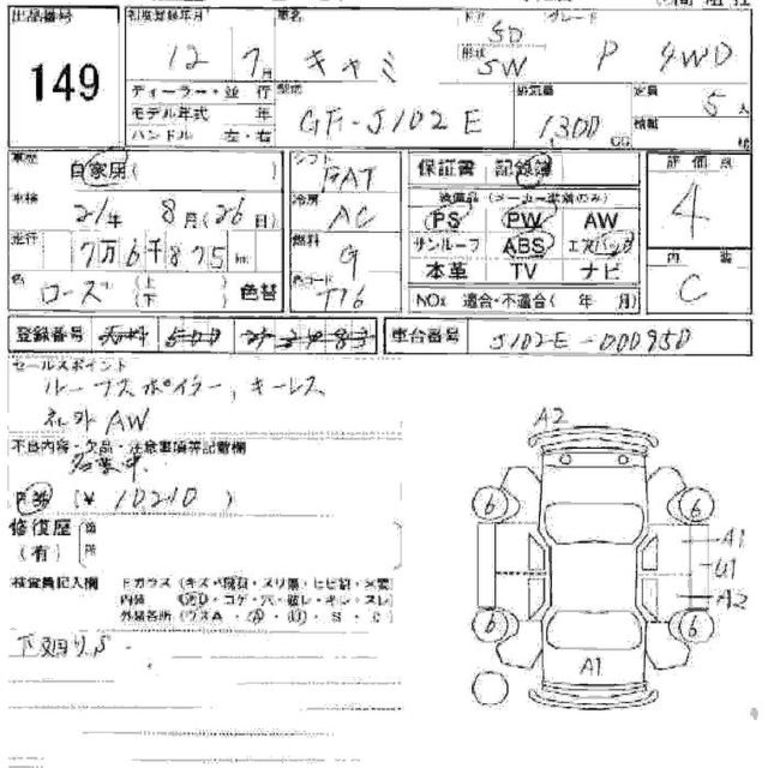 出品番号
149
初度登録年月
12 7月
ディーラー・並 行
モデル年式 年
ハンドル 左・右
車名
キャミ
ドア 5D
形状 SW
グレード
P 4WD
型式
GF-J102E
排気量
1,300 CC
定員 5 人
積載
車歴
自家用( )
車検
21年 8月(26日)
走行
7万6千875km
色
ローズ (上 下 ) 色替
シフト
FAT
冷房
AC
燃料
G
色コード
TT6
保証書 記録簿
装備品(メーカー装着のみ)
PS PW AW
サンルーフ ABS エアバッグ
本革 TV ナビ
NOx 適合・不適合( 年 月)
評価点
4
内装
C
登録番号
車台番号 J102E-000950
セールスポイント
ルーフスポイラー, キーレス
社外AW
不良内容・欠品・注意事項等記載欄
名変中
(¥ 10210 )
修復歴
(有)
検査員記入欄
Fガラス
内装
外装各所
下廻りS
A2
6
6
A1
U1
A2
6
6
A1